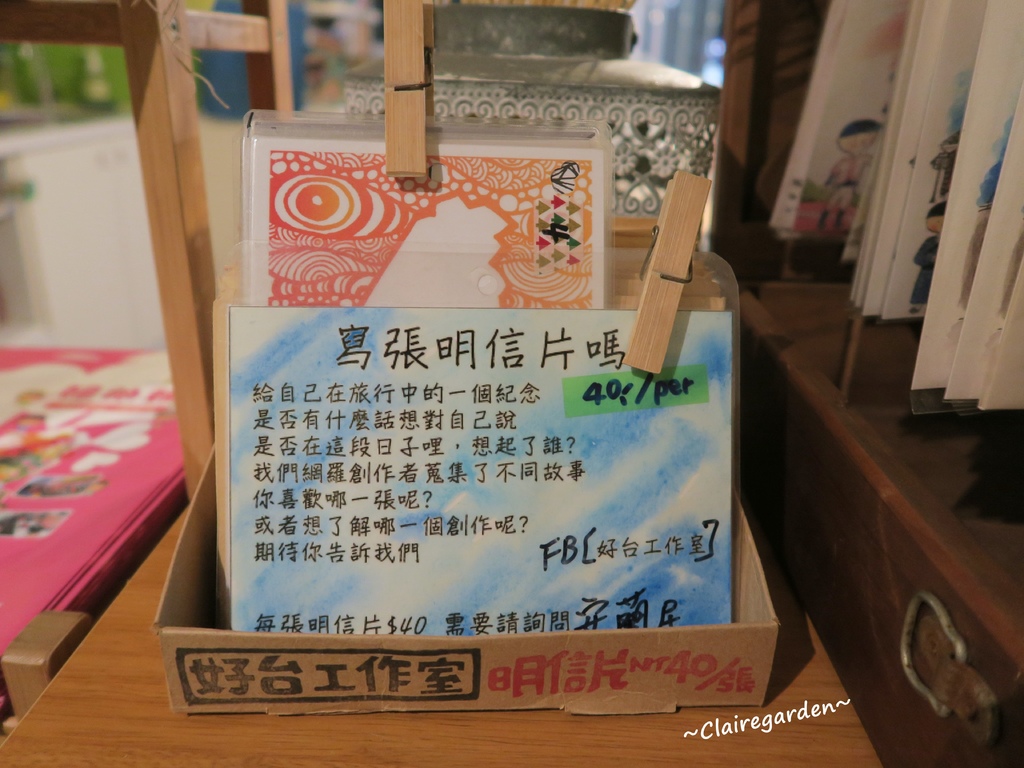 寫張明信片嗎
40,-/per
給自己在旅行中的一個紀念
是否有什麼話想對自己說
是否在這段日子哩，想起了誰?
我們網羅創作者蒐集了不同故事
你喜歡哪一張呢?
或者想了解哪一個創作呢?
期待你告訴我們
FB[好台工作室]
每張明信片$40 需要請詢問
好台工作室 明信片NT40/張
~Clairegarden~